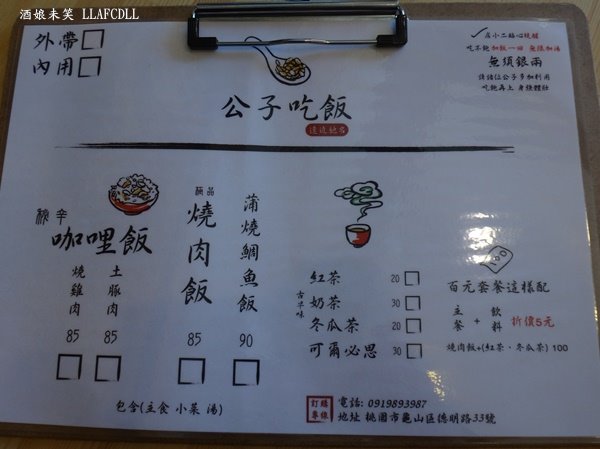 酒娘未笑 LLAFCDLL
外帶
內用
✓店小二貼心提醒
吃不飽加飯一回 無限加湯
無須銀兩
請諸位公子多加利用
吃飽再上 身強體壯
公子吃飯
遠近馳名
辛
咖哩飯
燒雞肉
85
土豚肉
85
燒肉飯
85
蒲燒鯛魚飯
90
包含(主食 小菜 湯)
古早味
紅茶 20
奶茶 30
冬瓜茶 20
可爾必思 30
百元套餐這樣配
主餐 + 飲料 折價5元
燒肉飯+(紅茶、冬瓜茶) 100
訂購專線
電話: 0919893987
地址 桃園市龜山區德明路33號